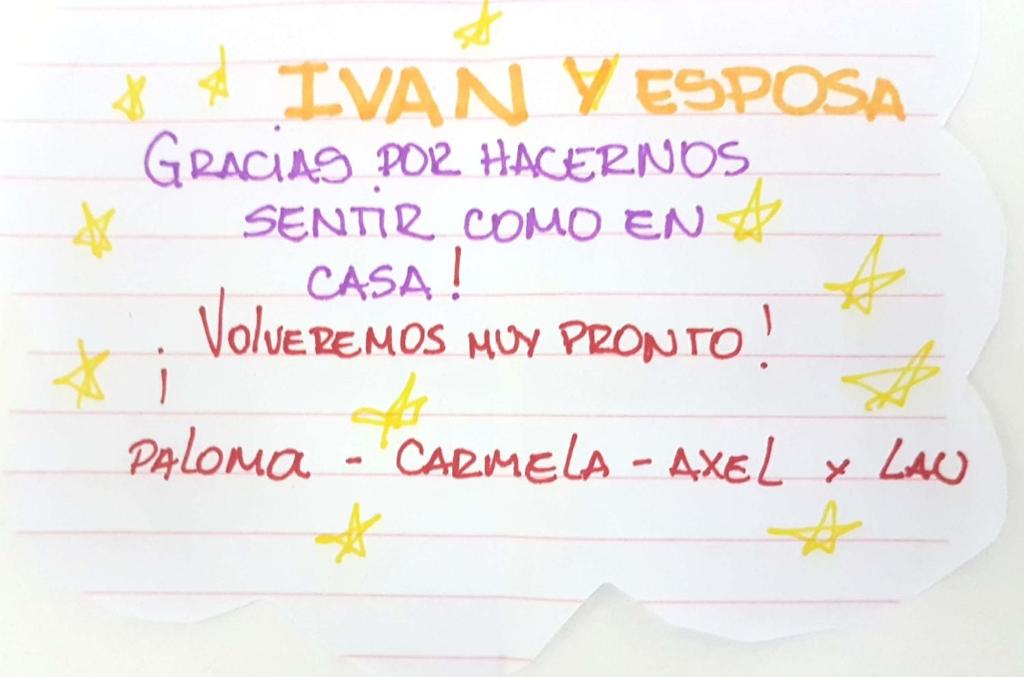 IVAN Y ESPOSA
GRACIAS POR HACERNOS
SENTIR COMO EN
CASA!
¡VOLVEREMOS MUY PRONTO!
PALOMA - CARMELA - AXEL y LAU